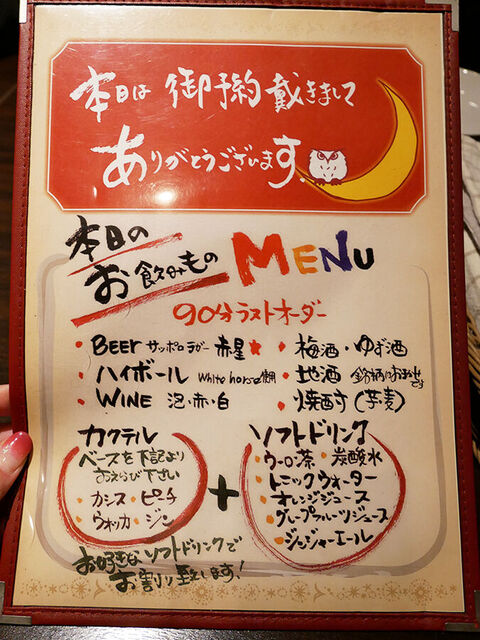 本日は 御予約 戴きまして
ありがとうございます.
本日の
お飲みもの MENU
90分ラストオーダー
・BEER サッポロラガー 赤星★
・ハイボール White horse使用
・WINE 泡・赤・白
・梅酒・ゆず酒
・地酒 銘柄はおまかせです
・焼酎(芋・麦)
カクテル
ベースを下記より
おえらび下さい
・カシス・ピーチ
・ウォッカ・ジン
+
ソフトドリンク
・ウーロン茶・炭酸水
・トニックウォーター
・オレンジジュース
・グレープフルーツジュース
・ジンジャーエール
お好きなソフトドリンクで
お割り致します!